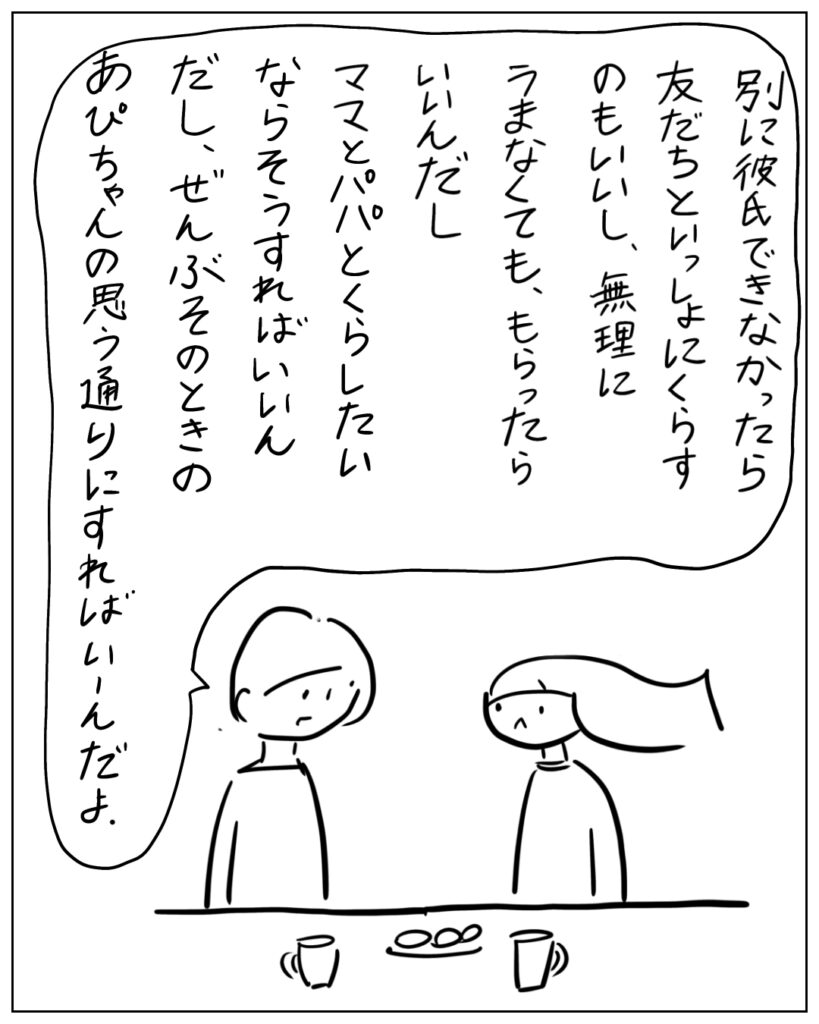 別に彼氏できなかったら
友だちといっしょにくらす
のもいいし、無理に
うまなくても、もらったら
いいんだし
ママとパパとくらしたい
ならそうすればいいん
だし、ぜんぶそのときの
あぴちゃんの思う通りにすればいーんだよ.